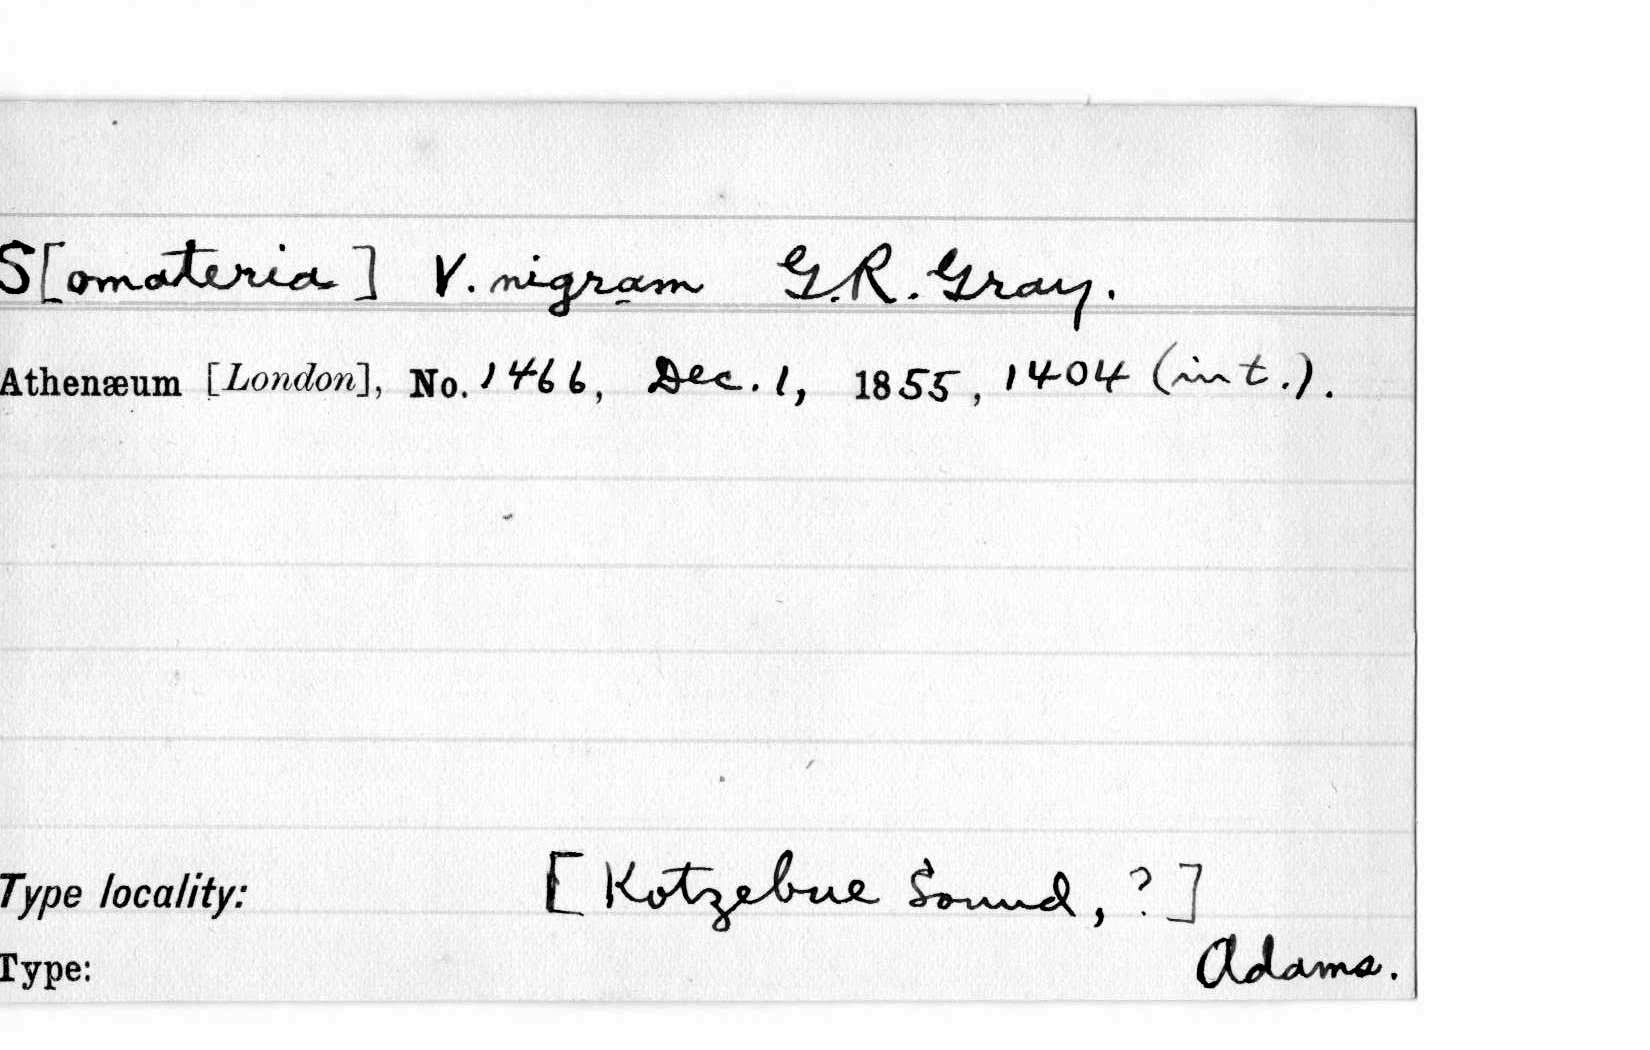 S[omateria] V. nigram G.R. Gray.
Athenæum [London], No. 1466, Dec. 1, 1855, 1404 (int.).
Type locality: [Kotzebue Sound, ?]
Type: Adams.